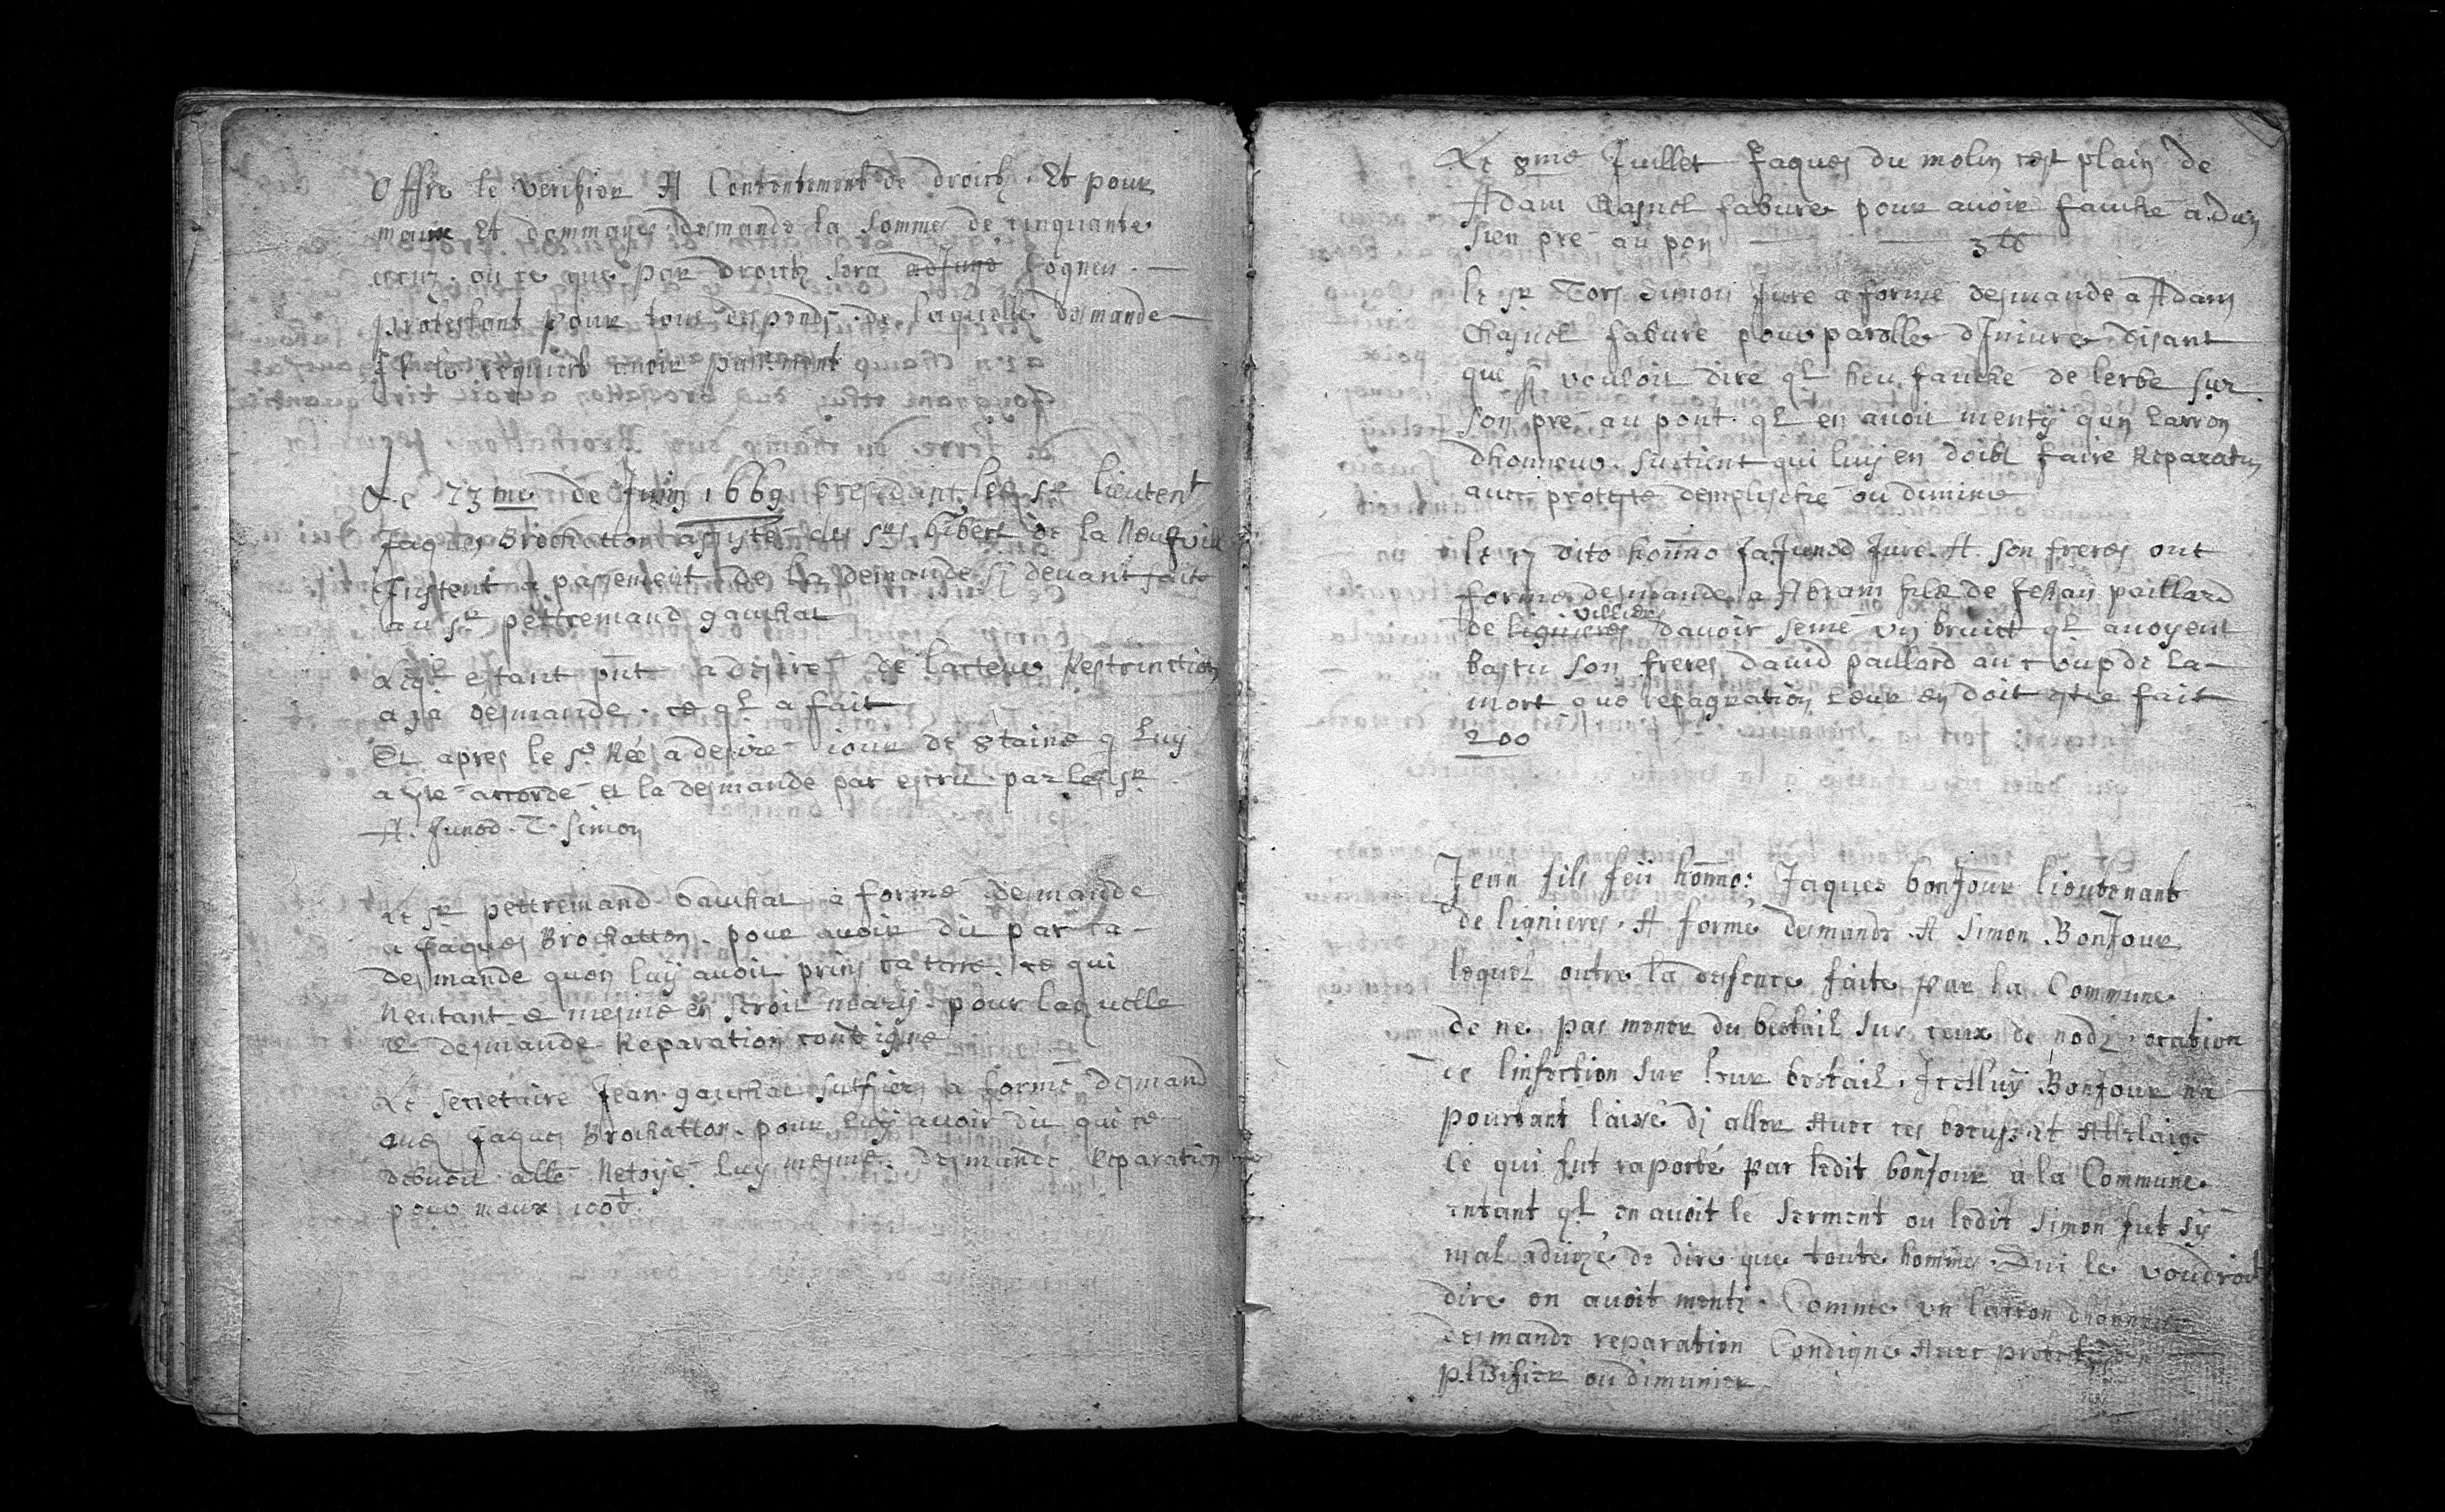 Offre le verifier A Contentement de droict. Et pour
maux Et dommages desmande la somme de cinquante
escuz. ou ce que par droictz sera cogneu. —
protestant pour tous despends. de laquelle desmande —
Il le requiert avoir passement
Le 23me de Juin 1669 presidant led sr lieutent
Jaques Brochatton assisté du sr Gibert de la Neufvill
Instent a passement de la demande sj devant fait
au sr pettremand gauchat
Leql estant pnt a desiré de lacteur Restrinction
a sa desmande. ce ql a fait
Et apres le sr Reé a desire iour de 8taine q Luy
a este accordé et la desmande par escrit. par led sr
A. Junod. T. Simon
Le sr pettremand Gauchat a formé desmande
a Jaques Brochatton. pour avoir dit par sa —
desmande quon luy avoit prins sa terre. ce qui
Nentant e mesme en seroit mary. pour laquelle
ce desmande. Reparation condigne
Le secretaire Jean. gauchat a formé desmand
aud Jaques Brochatton. pour luy avoir dit qui ce
debvoit allé Netoyé luy mesme. desmande Reparation
pour maux 100
Le 8me Juillet Jaques du molin cest plain de
Adam Chasnel fabure pour avoir fauché a dun
sien pré au pon — 3 tt
le sr Tors Simon Juré a formé desmande a Adam
Chasnel fabure pour parolle dIniure disant
que sy vouloit dire ql heu fauché de lerbe sur
son pré au pont. ql en avoit menty qun Larron
dhonneur. sustient qui luy en doibt faire Reparation
avec proteste demplisché ou diminue
le dito honno Ja. Junod Juré. A. son freres ont
formé desmande a Abram filz de Jehan paillard
de lignieres villiers davoir semé un bruict ql avoyent
bastu son freres david paillard au coup de la —
mort que reparation Leur en doit estre fait
200
Jean fils feu honno: Jaques bonJour lieutenant
de lignieres. A formé desmande A Simon BonJour
lequel outre la desfence faite par la Commune
de ne pas mener du bestail sur ceux de nodz. ocation
de linfection sur leur bestail. Icelluy BonJour na —
pourtant laissé dj aller Avec ces boeufs et Attelaige
Ce qui fut raporté par ledit bonJour a la Commune
entant ql en avoit le serment ou ledit Simon fut sy
mal advizé de dire que toute homme. Qui le voudroit
dire en avoit menti. Comme un larron dhonneur
desmande reparation Condigne Avec protest
plisifier ou dimunier